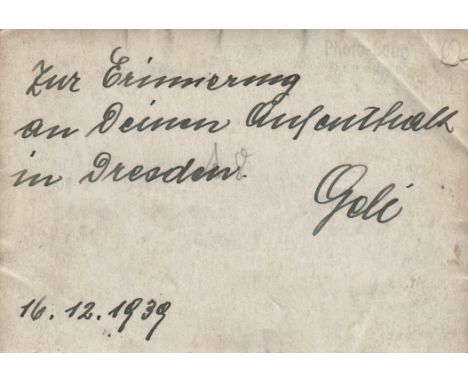 Zur Erinnerung
an Deinen Aufenthalt
in Dresden.
Geli
16.12.1939